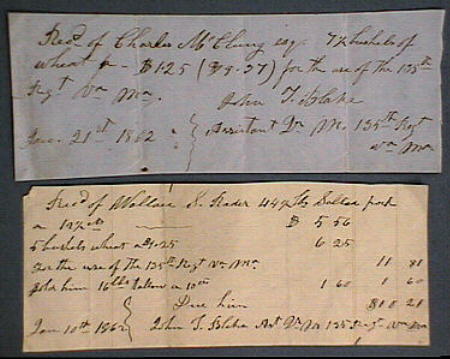 Recd of Charles McClung esq. 7½ bushels of
wheat a - $1.25 ($9.37) for the use of the 135th
Regt Va Ma.
John T. Blake
Jan. 21st 1862 Assistant Qr M. 135th Regt
Va Ma
Recd of Wallace S. Rader 44½ lbs Salted pork
a 12½ cts $ 5 56
5 bushels wheat a $1.25 6 25
For the use of the 135th Regt Va Ma 11 81
Sold him 16 lbs tallow a 10cts 1 60 1 60
Due him $10 21
Jan 10th 1862 John T. Blake Ast Qr M 135 Regt Va Ma